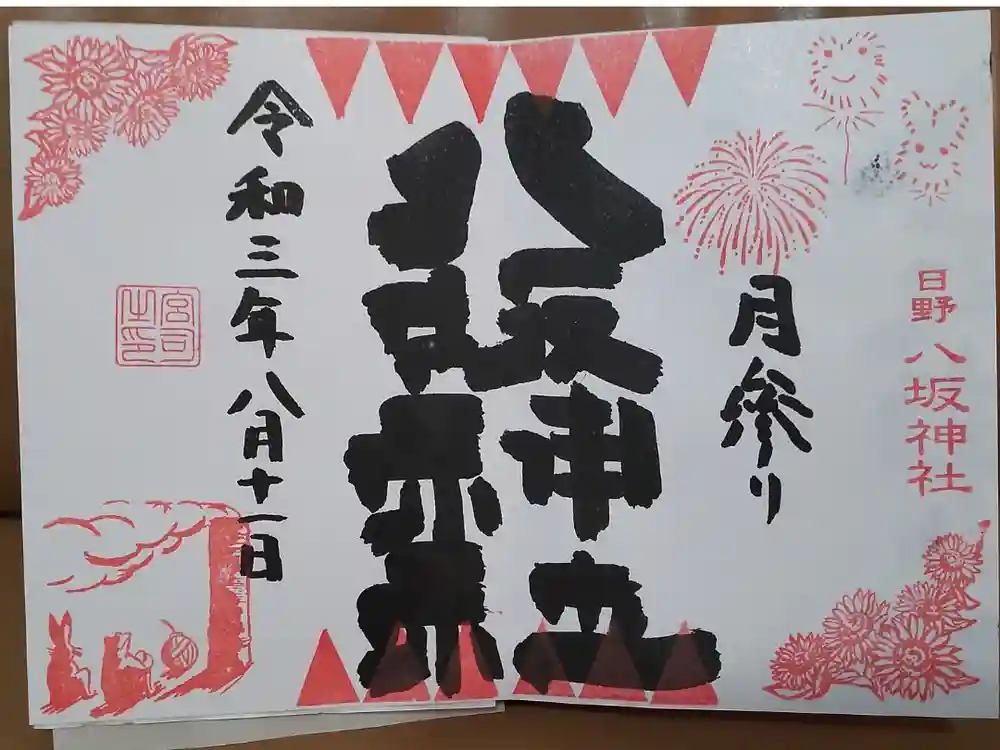 日野八坂神社
月参り
八坂神社
令和三年八月十一日
宮司
之印